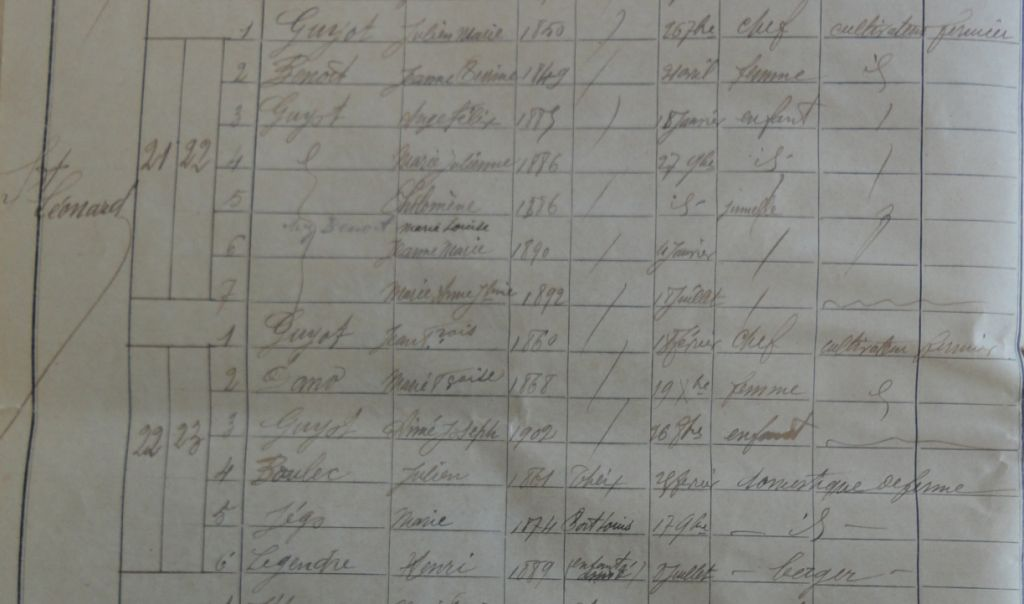 1 Guyot Julien Marie 1850 26 7bre chef cultivateur fermier
2 Benoît Jeanne 1849 avril femme id
3 Guyot Ange Félix 1883 18 Janvier enfant
4 Marie Julienne 1886 27 9bre id
21 22
St Léonard
5 Philomène 1886 id jumelle
Marie Louise
6 Jeanne Marie 1890 4 Janvier
7 Marie Anne 1892 18 Juillet
1 Guyot Jean Frois 1860 18 février chef cultivateur fermier
2 Marie Fçoise 1868 19 Xbre femme id
22 23
3 Guyot Aimé Joseph 1902 26 9bre enfant
4 Boulec Julien 1861 Theix 25 février domestique de ferme
5 Jégo Marie 1874 Port Louis 17 9bre — id —
6 Legendre Henri 1889 Juillet - berger -